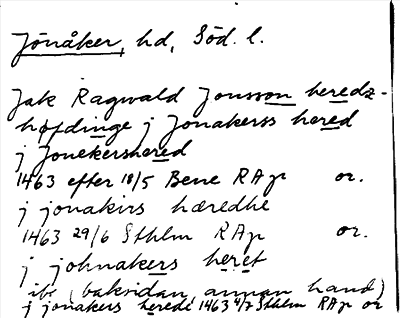 Jönåker, hd, Söd. l.
Jak Ragwald Jonsson heredz-
høfdinge j Jonakerss hered
j Jonekershered
1463 efter 18/5 Bene RAp or.
j jonakirs hæredhe
1463 29/6 Sthlm RAp or.
j johnakers heret
ibs (baksidan, annan hand)
j jonakers herede 1463 4/7 Sthlm RAp or